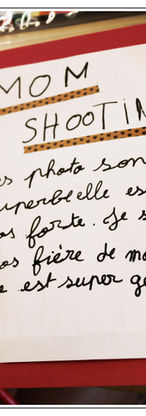 MOM
SHOOTIN
es photo son
uperbe elle es
as forte. Je s
as fière de mo
e est super ge